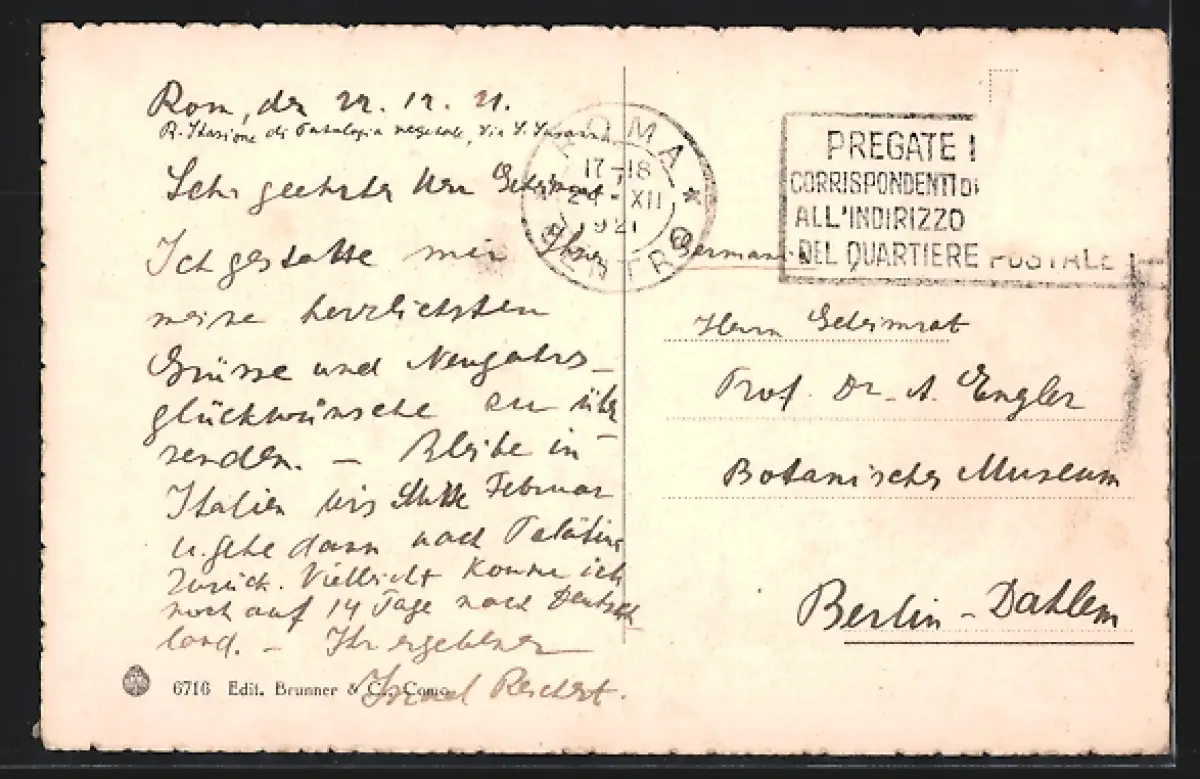 Rom, den 22. 12. 21.
R. Stazione di Patologia vegetale, Via S. Susanna
Sehr geehrter Herr Geheimrat
Ich gestatte mir Ihnen
meine herzlichsten
Grüsse und Neujahrs-
glückwünsche zu über
senden. – Bleibe in
Italien bis Mitte Februar
u. gehe dann nach Palästina
zurück. Vielleicht komme ich
noch auf 14 Tage nach Deutsch
land. – Ihr ergebener
Israel Reichert.
6716 Edit. Brunner & C., Como
ROMA
17-18
XII
1921
CENTRO
PREGATE I
CORRISPONDENTI DI
ALL'INDIRIZZO
DEL QUARTIERE POSTALE
Germania
Herrn Geheimrat
Prof. Dr. A. Engler
Botanisches Museum
Berlin-Dahlem